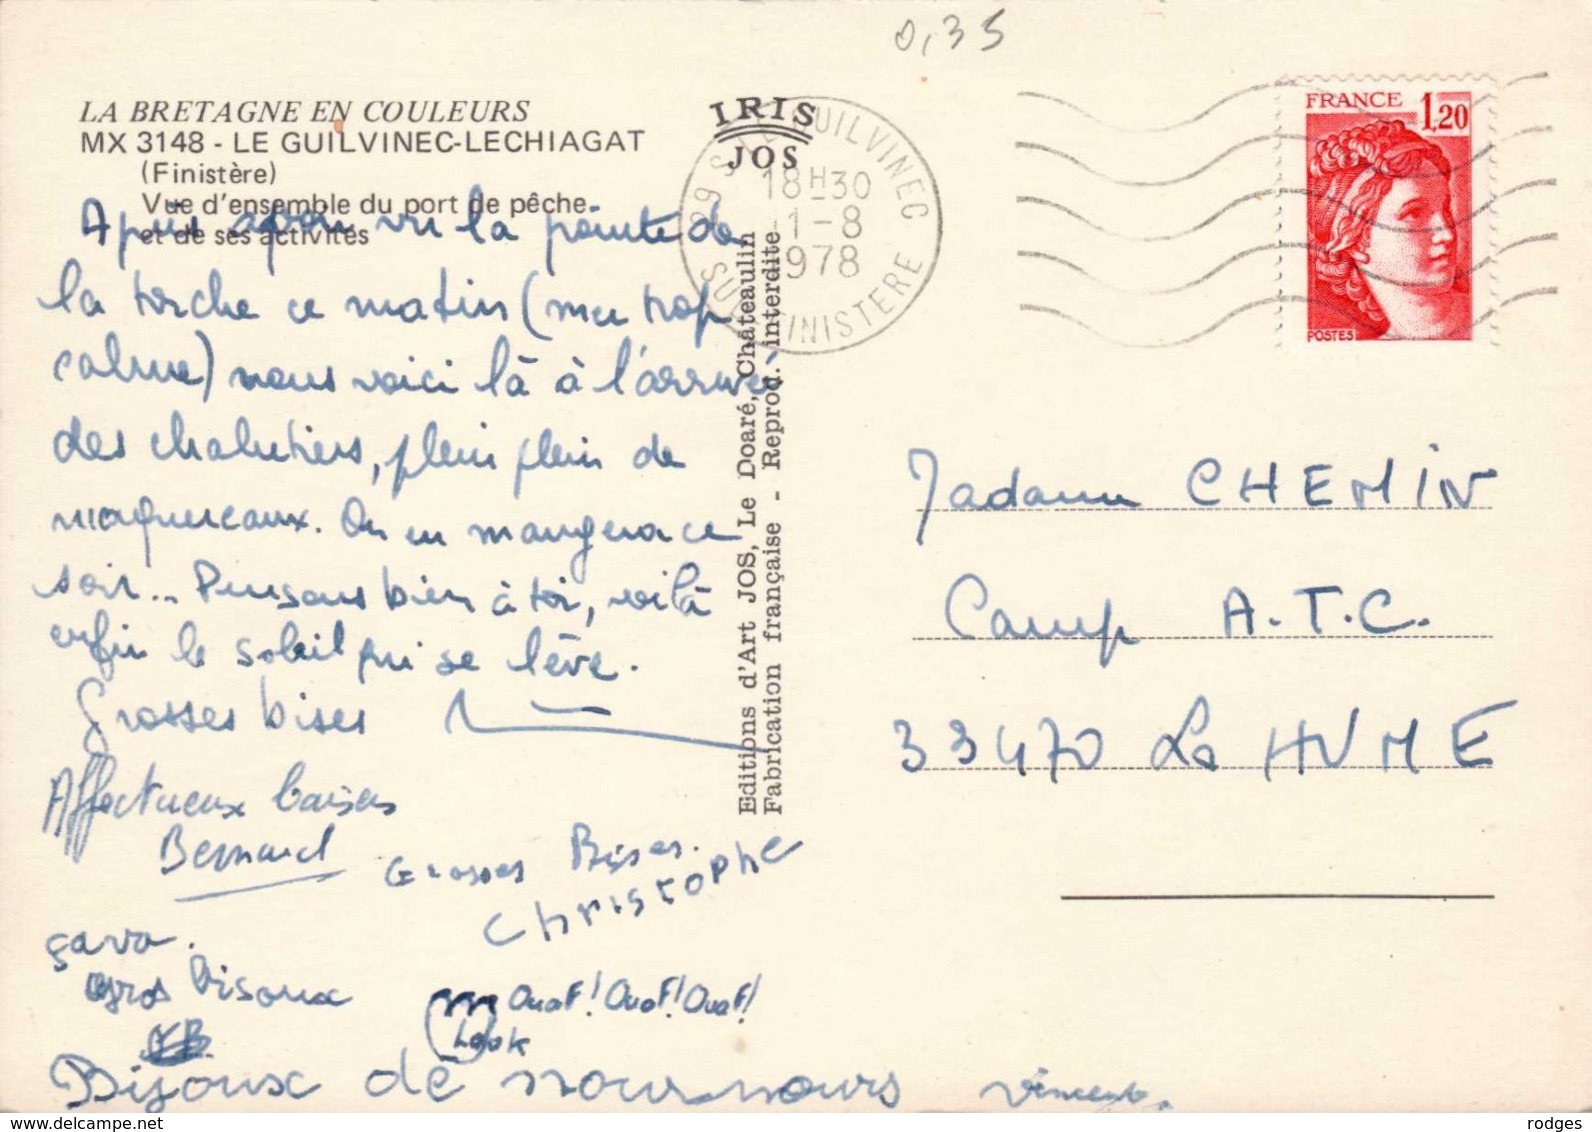 0,35
LA BRETAGNE EN COULEURS
MX 3148 - LE GUILVINEC-LECHIAGAT
(Finistère)
Vue d'ensemble du port de pêche
et de ses activités
IRIS
JOS
29 S LE GUILVINEC
18H30
11-8
1978
SUD FINISTERE
FRANCE 1,20
POSTES
Après avoir vu la pointe de
la torche ce matin (mer trop
calme) nous voici là à l'arrivée
des chalutiers, plein plein de
maquereaux. On en mangera ce
soir... Pensons bien à toi, voilà
enfin le soleil qui se lève.
Grosses bises
Affectueux baisers
Bernard
Grosses Bises.
Christophe
ça va.
gros bisoux
Ouaf! Ouaf! Ouaf!
Look
Bijoux de nournours vincent.
Editions d'Art JOS, Le Doaré, Châteaulin
Fabrication française - Reprod. interdite
Madame CHEMIN
Camp A.T.C.
33470 La HUME
delcampe.net
rodges